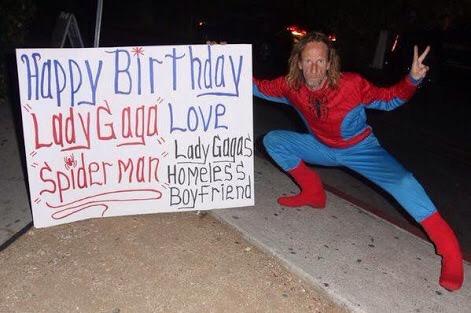 Happy Birthday
"Lady Gaga" Love
"Spiderman"
Lady Gagas
Homeless
Boyfriend